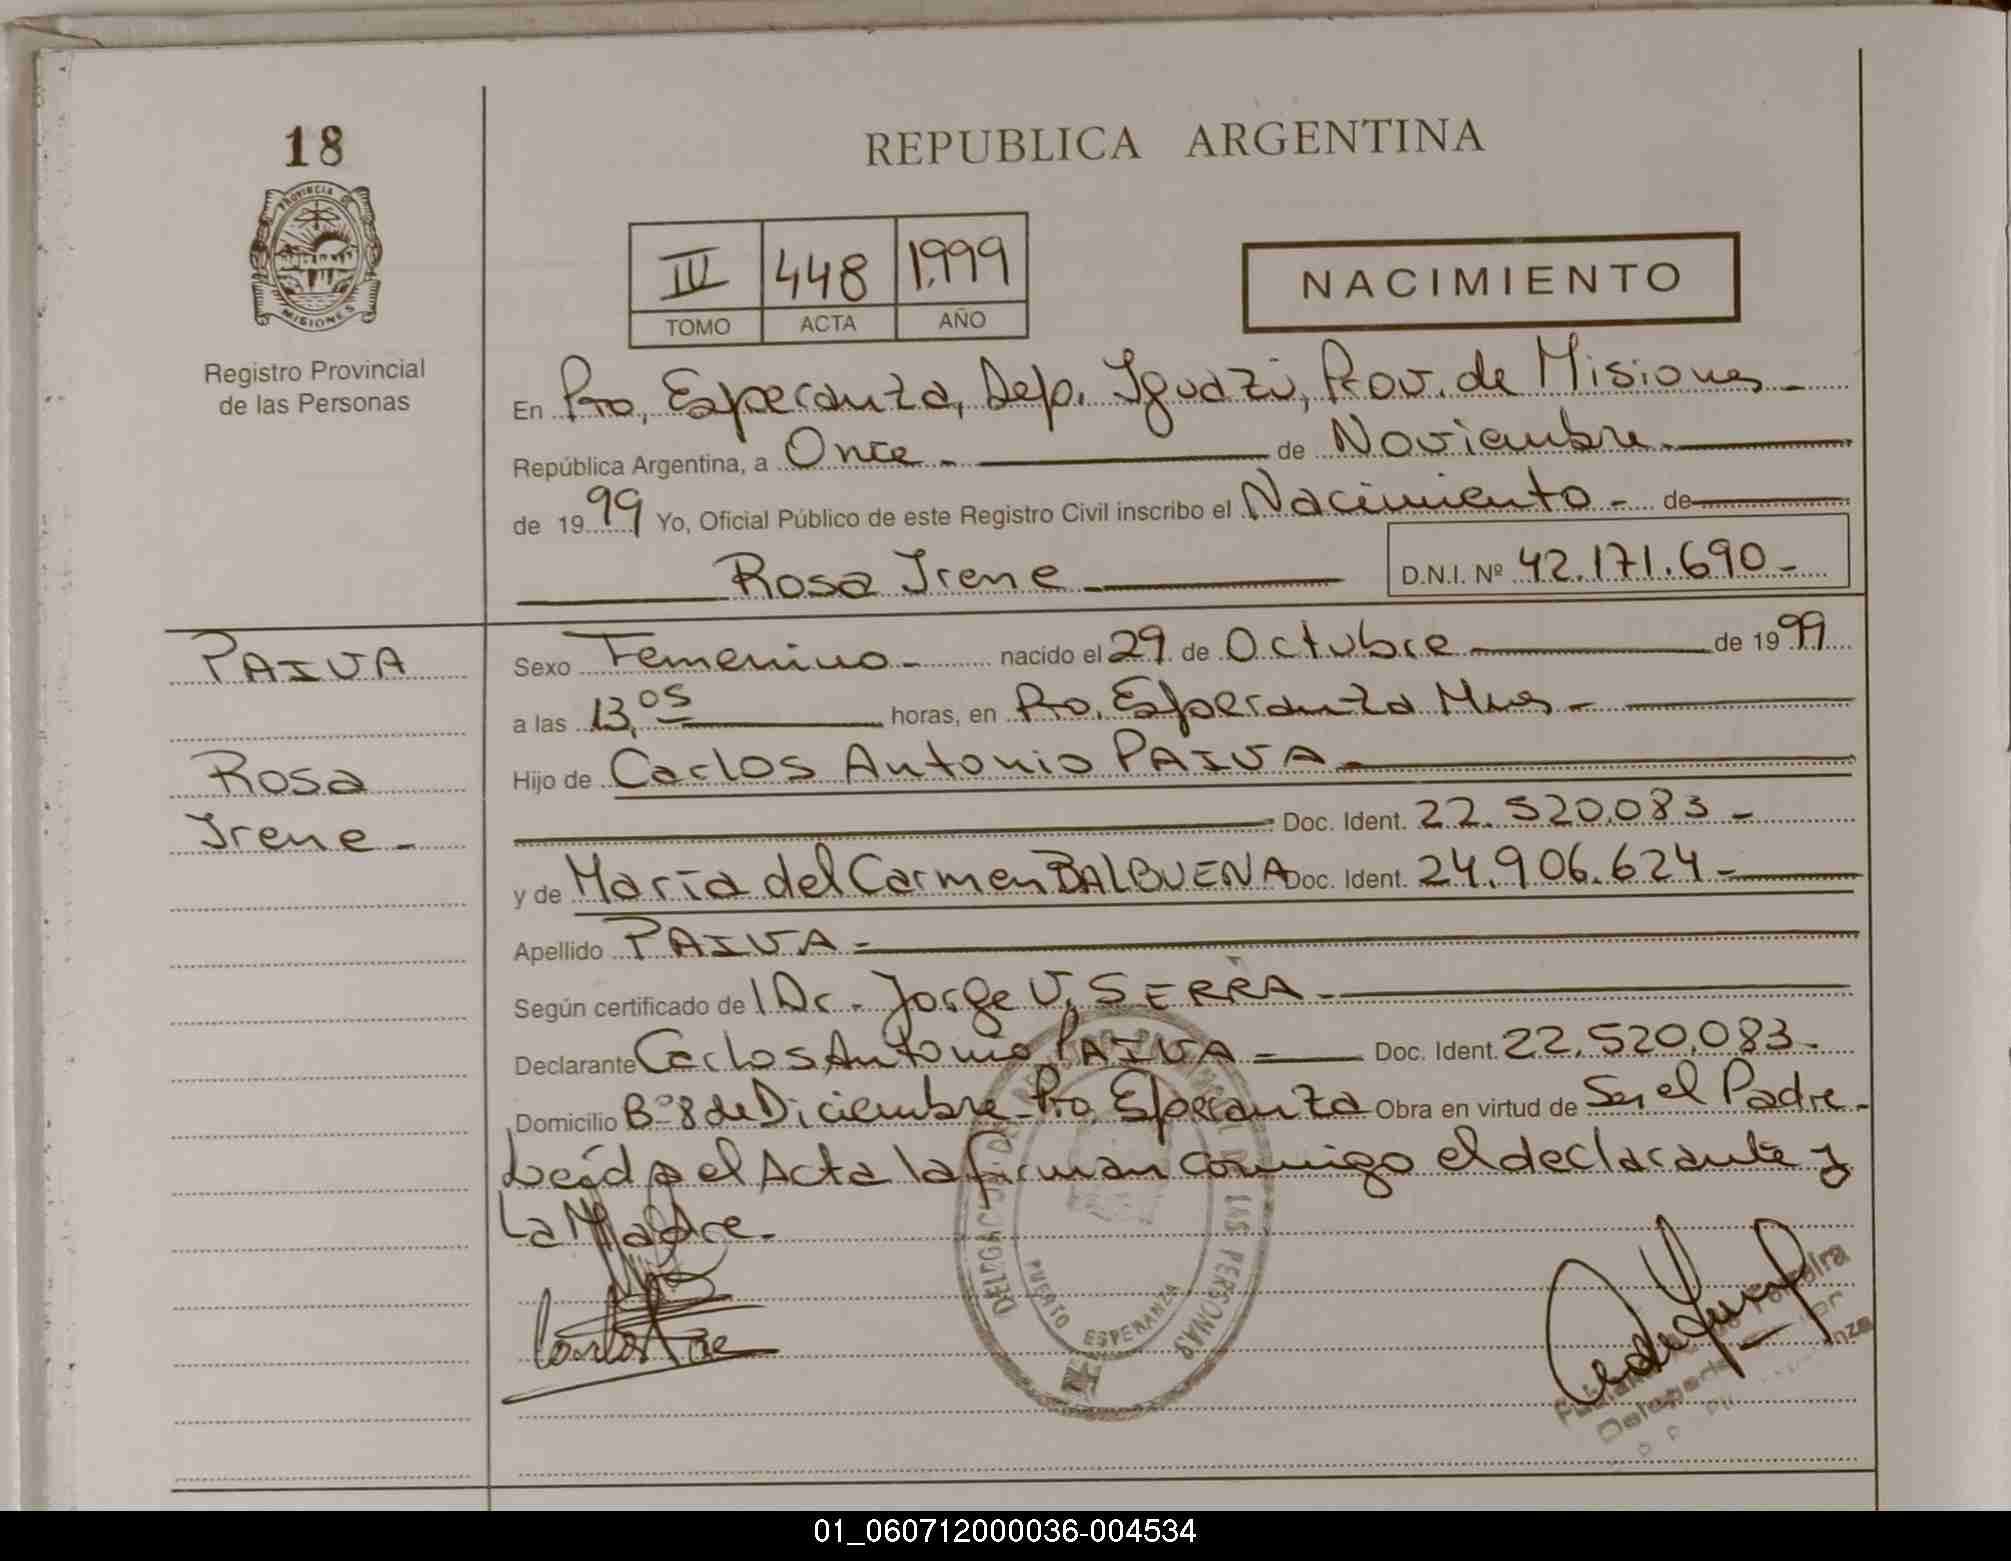 18
PROVINCIA DE
MISIONES
Registro Provincial
de las Personas
REPUBLICA ARGENTINA
IV 448 1.999
TOMO ACTA AÑO
NACIMIENTO
En Pto, Esperanza, Dep. Iguazú, Prov. de Misiones -
República Argentina, a Once - de Noviembre -
de 1999 Yo, Oficial Público de este Registro Civil inscribo el Nacimiento - de
Rosa Irene D.N.I. Nº 42.171.690 -
PAIVA
Rosa
Irene -
Sexo Femenino - nacido el 29 de Octubre de 1999
a las 13,05 horas, en Pto. Esperanza Mnes -
Hijo de Carlos Antonio PAIVA -
Doc. Ident. 22.520.083 -
y de María del Carmen BALBUENA Doc. Ident. 24.906.624 -
Apellido PAIVA -
Según certificado de l Dr. Jorge V. SERRA -
Declarante Carlos Antonio PAIVA - Doc. Ident. 22.520.083 -
Domicilio Bº 8 de Diciembre - Pto. Esperanza Obra en virtud de Ser el Padre -
Leída el Acta la firman conmigo el declarante y
La Madre -
DELEGACION REGISTRO PROVINCIAL DE LAS PERSONAS
PUERTO ESPERANZA
01_060712000036-004534